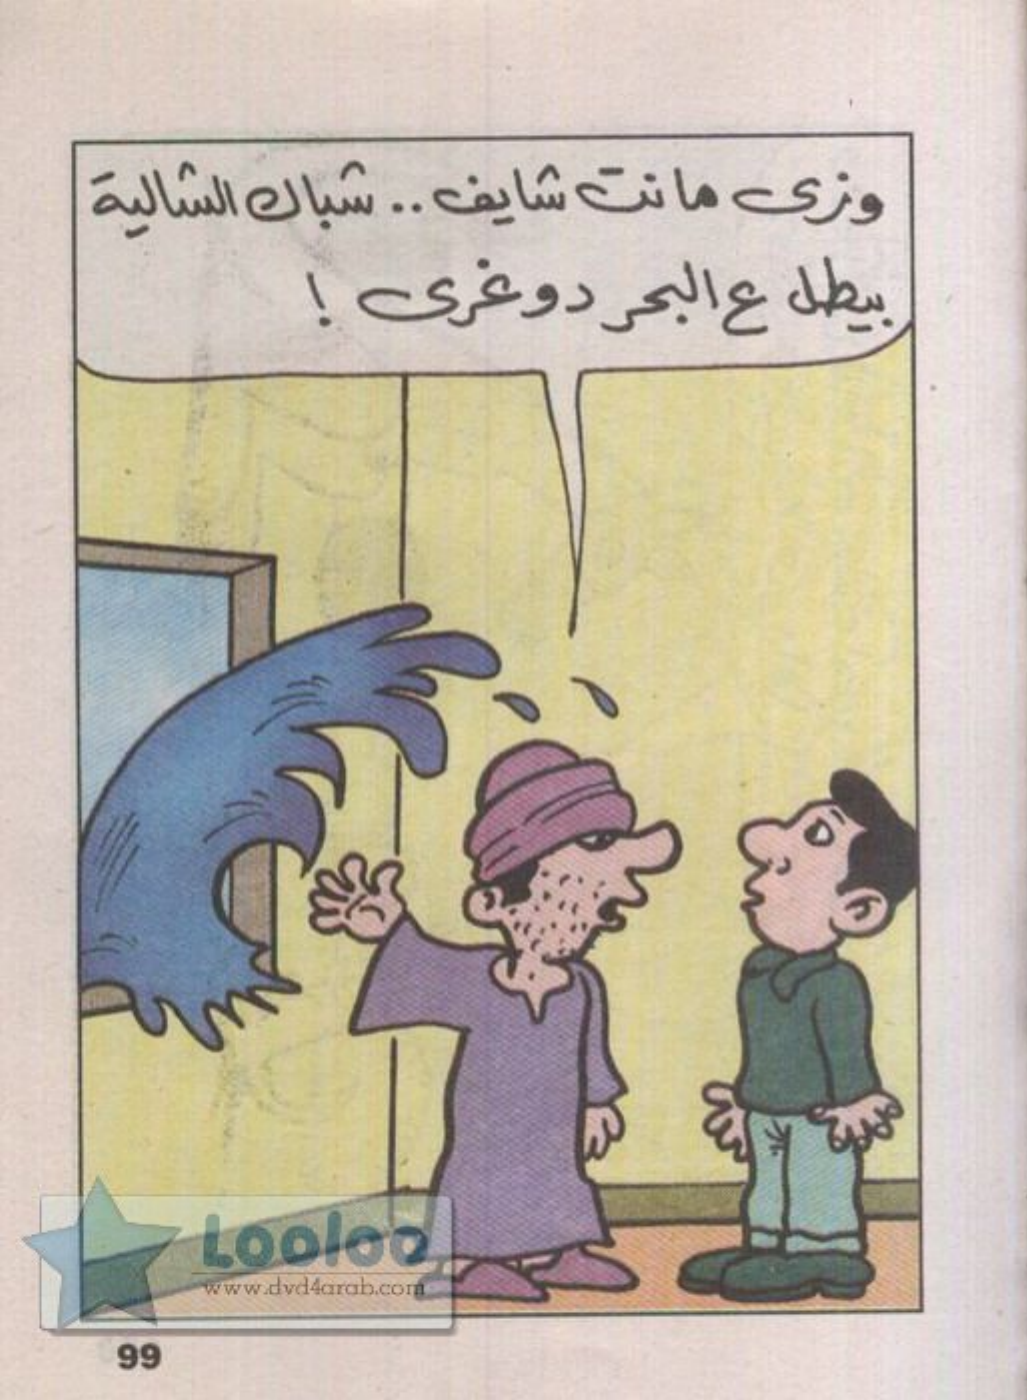 وزى مانت شايف .. شباك الشالية
بيطل ع البحر دوغرى !
Looloo
www.dvd4arab.com
99